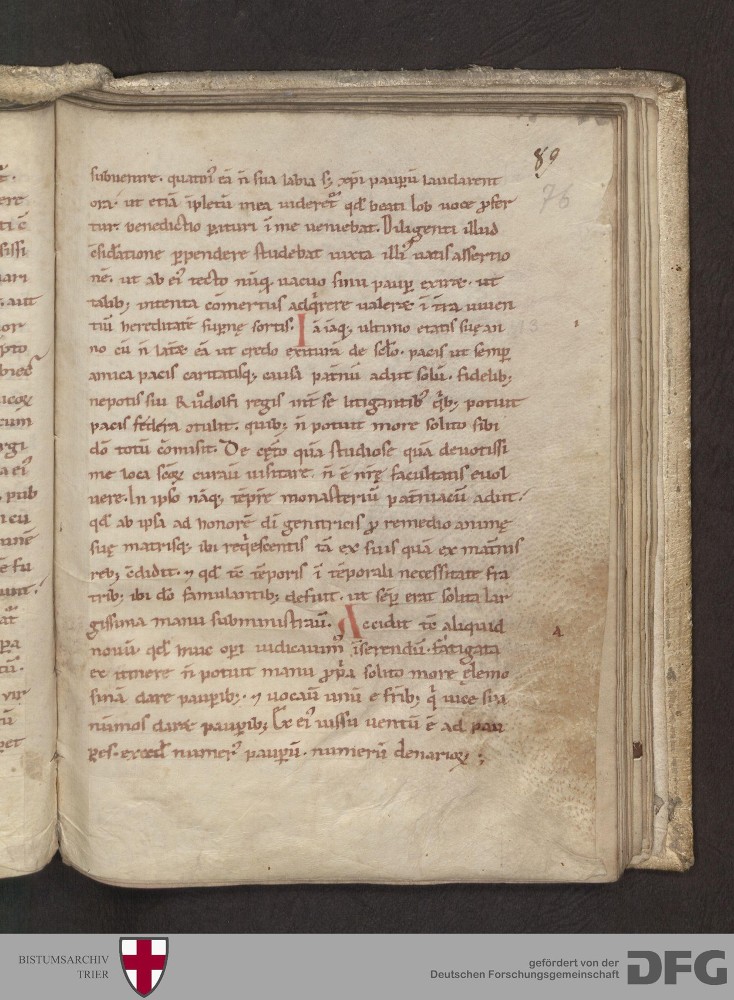 89
76
subuenire. quatin᷒ eā n̄ sua labia sꝫ xp̄i pauꝑū laudarent
ora. ut etiā īpletū in ea uideret᷑ qd̄ beati Iob uoce ꝓfer
tur. benedictio ꝑituri ī me ueniebat. Diligenti illud
ꝯsid̄atione ꝑpendere studebat iuxta illi᷒ uatis assertio
nē. ut ab ei᷒ tecto nūq̄ uacuo sinu pauꝑ exiret. ut
talibꝫ intenta cōmertiis adq̄rere ualeret ī t̄ra uiuen
tiū hereditatē suꝑnę sortis. Iā iāqꝫ ultimo etatis suę an
13
no cū n̄ lateret eā ut credo exiturā de sc̄lo. pacis ut semꝑ
amica pacis caritatisqꝫ causa pat̄nū adiit solū. fidelibꝫ
nepotis sui Ruͦdolfi regis int̄ se litigantibꝰ q̄bꝫ potuit
pacis fędera ꝯtulit. quibꝫ n̄ potuit more solito sibi
dō totū cōmisit. De cęto quā studiose quā deuotissi
me loca scōꝝ curau̅ uisitare. n̄ ē nr̄ę facultatis euol
uere. In ipso nāqꝫ tēpr̄e monasteriū pat̄niacū adiit.
qd̄ ab ipsa ad honorē dī genitricis ꝓ remedio animę
suę matrisqꝫ ibi req̄escentis tā ex suis quā ex mat̄nis
rebꝫ ꝯdidit. ⁊ qd̄ tc̄ tēporis ī tēporali necessitate fra
tribꝫ ibi dō famulantibꝫ defuit. ut sēꝑ erat solita lar
gissima manu subministrau̅. Accidit tc̄ aliquid
nouū. qd̄ huic oꝑi iudicauim᷒ īserendū. Fatigata
ex itinere n̄ potuit manu ꝓp̄a solito more ęlemo
sinā dare pauꝑibꝫ. ⁊ uocau̅ unū e fr̄ibꝫ q̄ uice sui
nūmos daret pauꝑibꝫ Ex ei᷒ iussu uentū ē ad pau
ꝑes. excedꝉ numer᷒ pauꝑū. numerū denarioꝝ ;
BISTUMSARCHIV
TRIER
gefördert von der
Deutschen Forschungsgemeinschaft
DFG